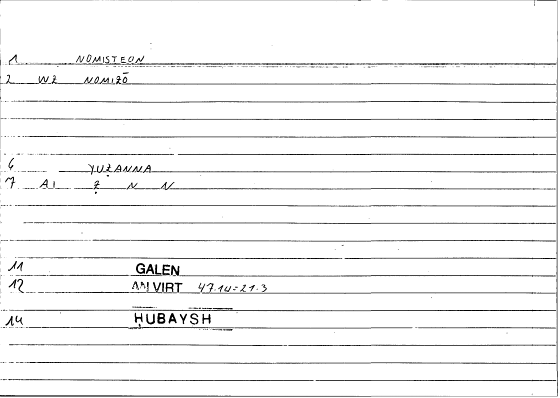 1 NOMISTEON
2 WZ NOMIZŌ
6 YUẒANNA
7 AI Ẓ N N
11 GALEN
12 AN VIRT 47.14=21.3
14 ḤUBAYSH